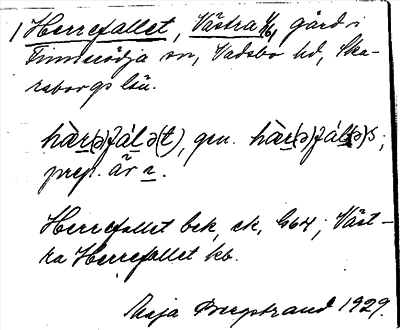 1 Herrefallet, Västra 1/6, gård i
Finnerödja sn, Vadsbo hd, Ska-
raborgs län.
hä̀r(ə)fálət(t), gen. hä̀r(ə)fál(ə)s;
prep. är
Herrefallet bek, ek, G64; Väst-
ra Herrefallet kb.
Maja Bergstrand 1929.